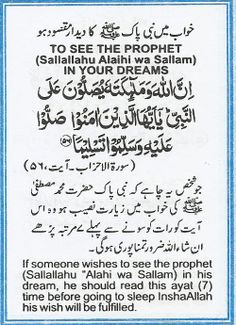 خواب میں نبی پاک ﷺ کا دیدار مقصود ہو
TO SEE THE PROPHET
(Sallallahu Alaihi wa Sallam)
IN YOUR DREAMS
اِنَّ اللهَ وَمَلٰٓئِكَتَهٗ يُصَلُّوْنَ عَلَى
النَّبِيِّ يٰٓاَيُّهَا الَّذِيْنَ اٰمَنُوْا صَلُّوْا
عَلَيْهِ وَسَلِّمُوْا تَسْلِيْمًا ﴿٥٦﴾
(سورۃ الاحزاب۔ آیت، ۵۶)
جو شخص یہ چاہے کہ نبی پاک حضرت محمد مصطفیٰ
ﷺ کی خواب میں زیارت نصیب ہو وہ اس
آیت کو رات کو سونے سے پہلے ۷ مرتبہ پڑھے
ان شاء اللہ ضرور تمنا پوری ہوگی۔
If someone wishes to see the prophet
(Sallallahu "Alahi wa Sallam) in his
dream, he should read this ayat (7)
time before going to sleep InshaAllah
his wish will be fulfilled.